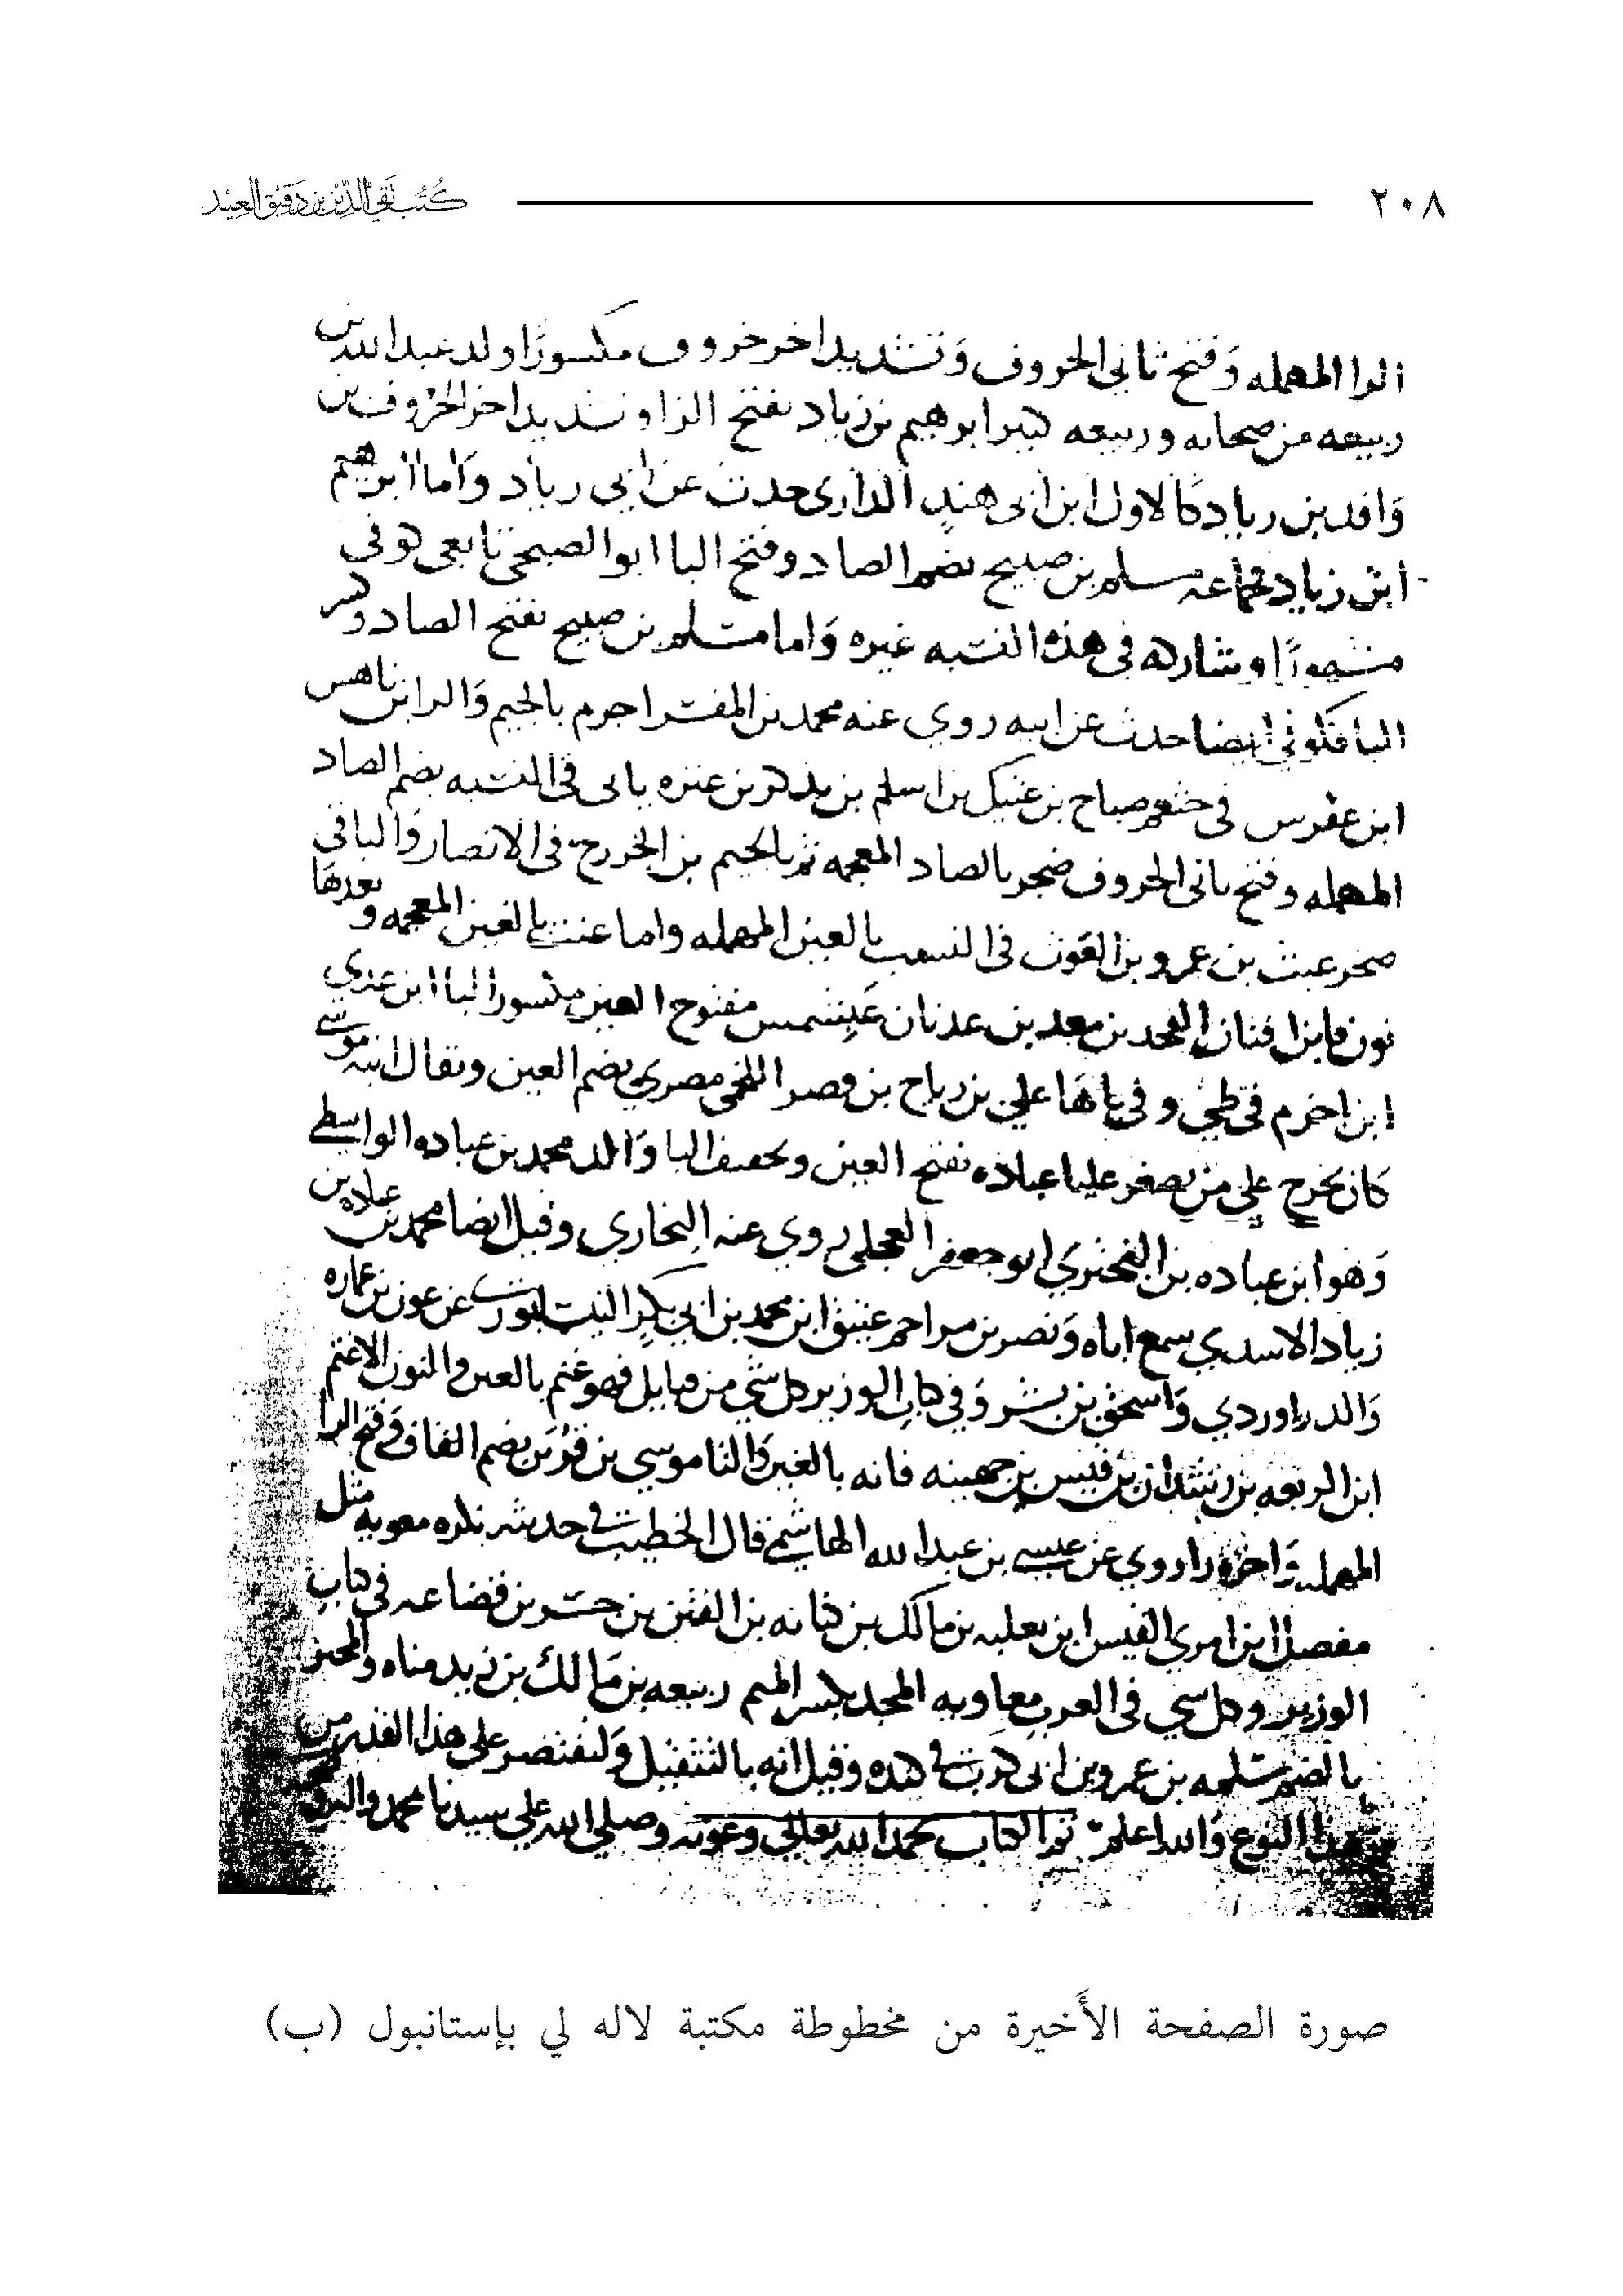 ٢٠٨ كتب تقي الدين بن دقيق العيد
الرا المهمله وفتح ثاني الحروف وتشديد اخر حروف مكسورا ولد عبد الله بن
ربيعه من صحابه وربيعه كبير ابرهيم بن زياد بفتح الزا وتشديد اخر الحروف بن
وافد بن رياد كالاول ابن ابي هند الداري حدث عن ابي رياد واما ابرهيم
ابن زياد فجماعه مسلم بن صبيح بضم الصاد وفتح البا ابو الصبحي تابعي كوفي
مشهور او شاركه في هذه النسبه غيره واما مسلم بن صبيح بفتح الصاد وكسر
البا فكوفي ايضا حدث عن ابيه روي عنه محمد بن المفسر اجرم بالجيم والرا بن ناهس
ابن عفرس في خثعم صباح بن عتيك بن اسلم بن يذكر بن عنزه ياتي في النسبه بضم الصاد
المهمله وفتح ثاني الحروف ضجر بالضاد المعجمه ثم بالجيم بن الخزرج في الانصار والباقي
صخر عبث بن عمرو بن الغوث في النسب بالعين المهمله واما عنث بالغين المعجمه وبعدها
نون فابن افنان بن القحد بن معد بن عدنان عبشمس مفتوح العين مكسور البا ابن عدي
ابن اخزم في طي وفي باها علي بن رباح بن قصر اللخمي مصري بضم العين ويقال ابنه موسي
كان يحرج علي من يصغر عليا عباده بفتح العين وتخفيف البا والد محمد بن عباده الواسطي
وهو ابن عباده بن البختري ابو جعفر العجلي روي عنه البخاري وقيل ايضا محمد بن عباده بن
زياد الاسدي سمع اباه ونصر بن مزاحم عتيق ابن محمد بن ابي بكر النيسابوري عن عون بن عماره
والدراوردي واسحق بن بشر وفي كتاب الوزير كل شي من قبايل فهو غنم بالغين والنون الا غثم
ابن الربعه بن رشدان بن قيس بن جهينه فانه بالغين والثا موسي بن قرين بضم القاف وفتح الرا
المهمله واخره را روي عن عيسي بن عبد الله الهاشمي قال الخطيب في حديثه نكره معويه مثل
مفصل ابن امري القيس ابن ثعلبه بن مالك بن كنانه بن القين بن جسر بن قضاعه في كتاب
الوزير وكل شي في العرب معاويه المجد بكسر الميم ربيعه بن مالك بن زيد مناه والمجبر
بالضم سلمه بن عمرو بن ابي كرب في كنده وقيل انه بالتثقيل ولنقتصر علي هذا القدر من
هذا النوع والله اعلم تم الكتاب بحمد الله تعالي وعونه وصلي الله علي سيدنا محمد واله
صورة الصفحة الأَخيرة من مخطوطة مكتبة لاله لي بإستانبول (ب)